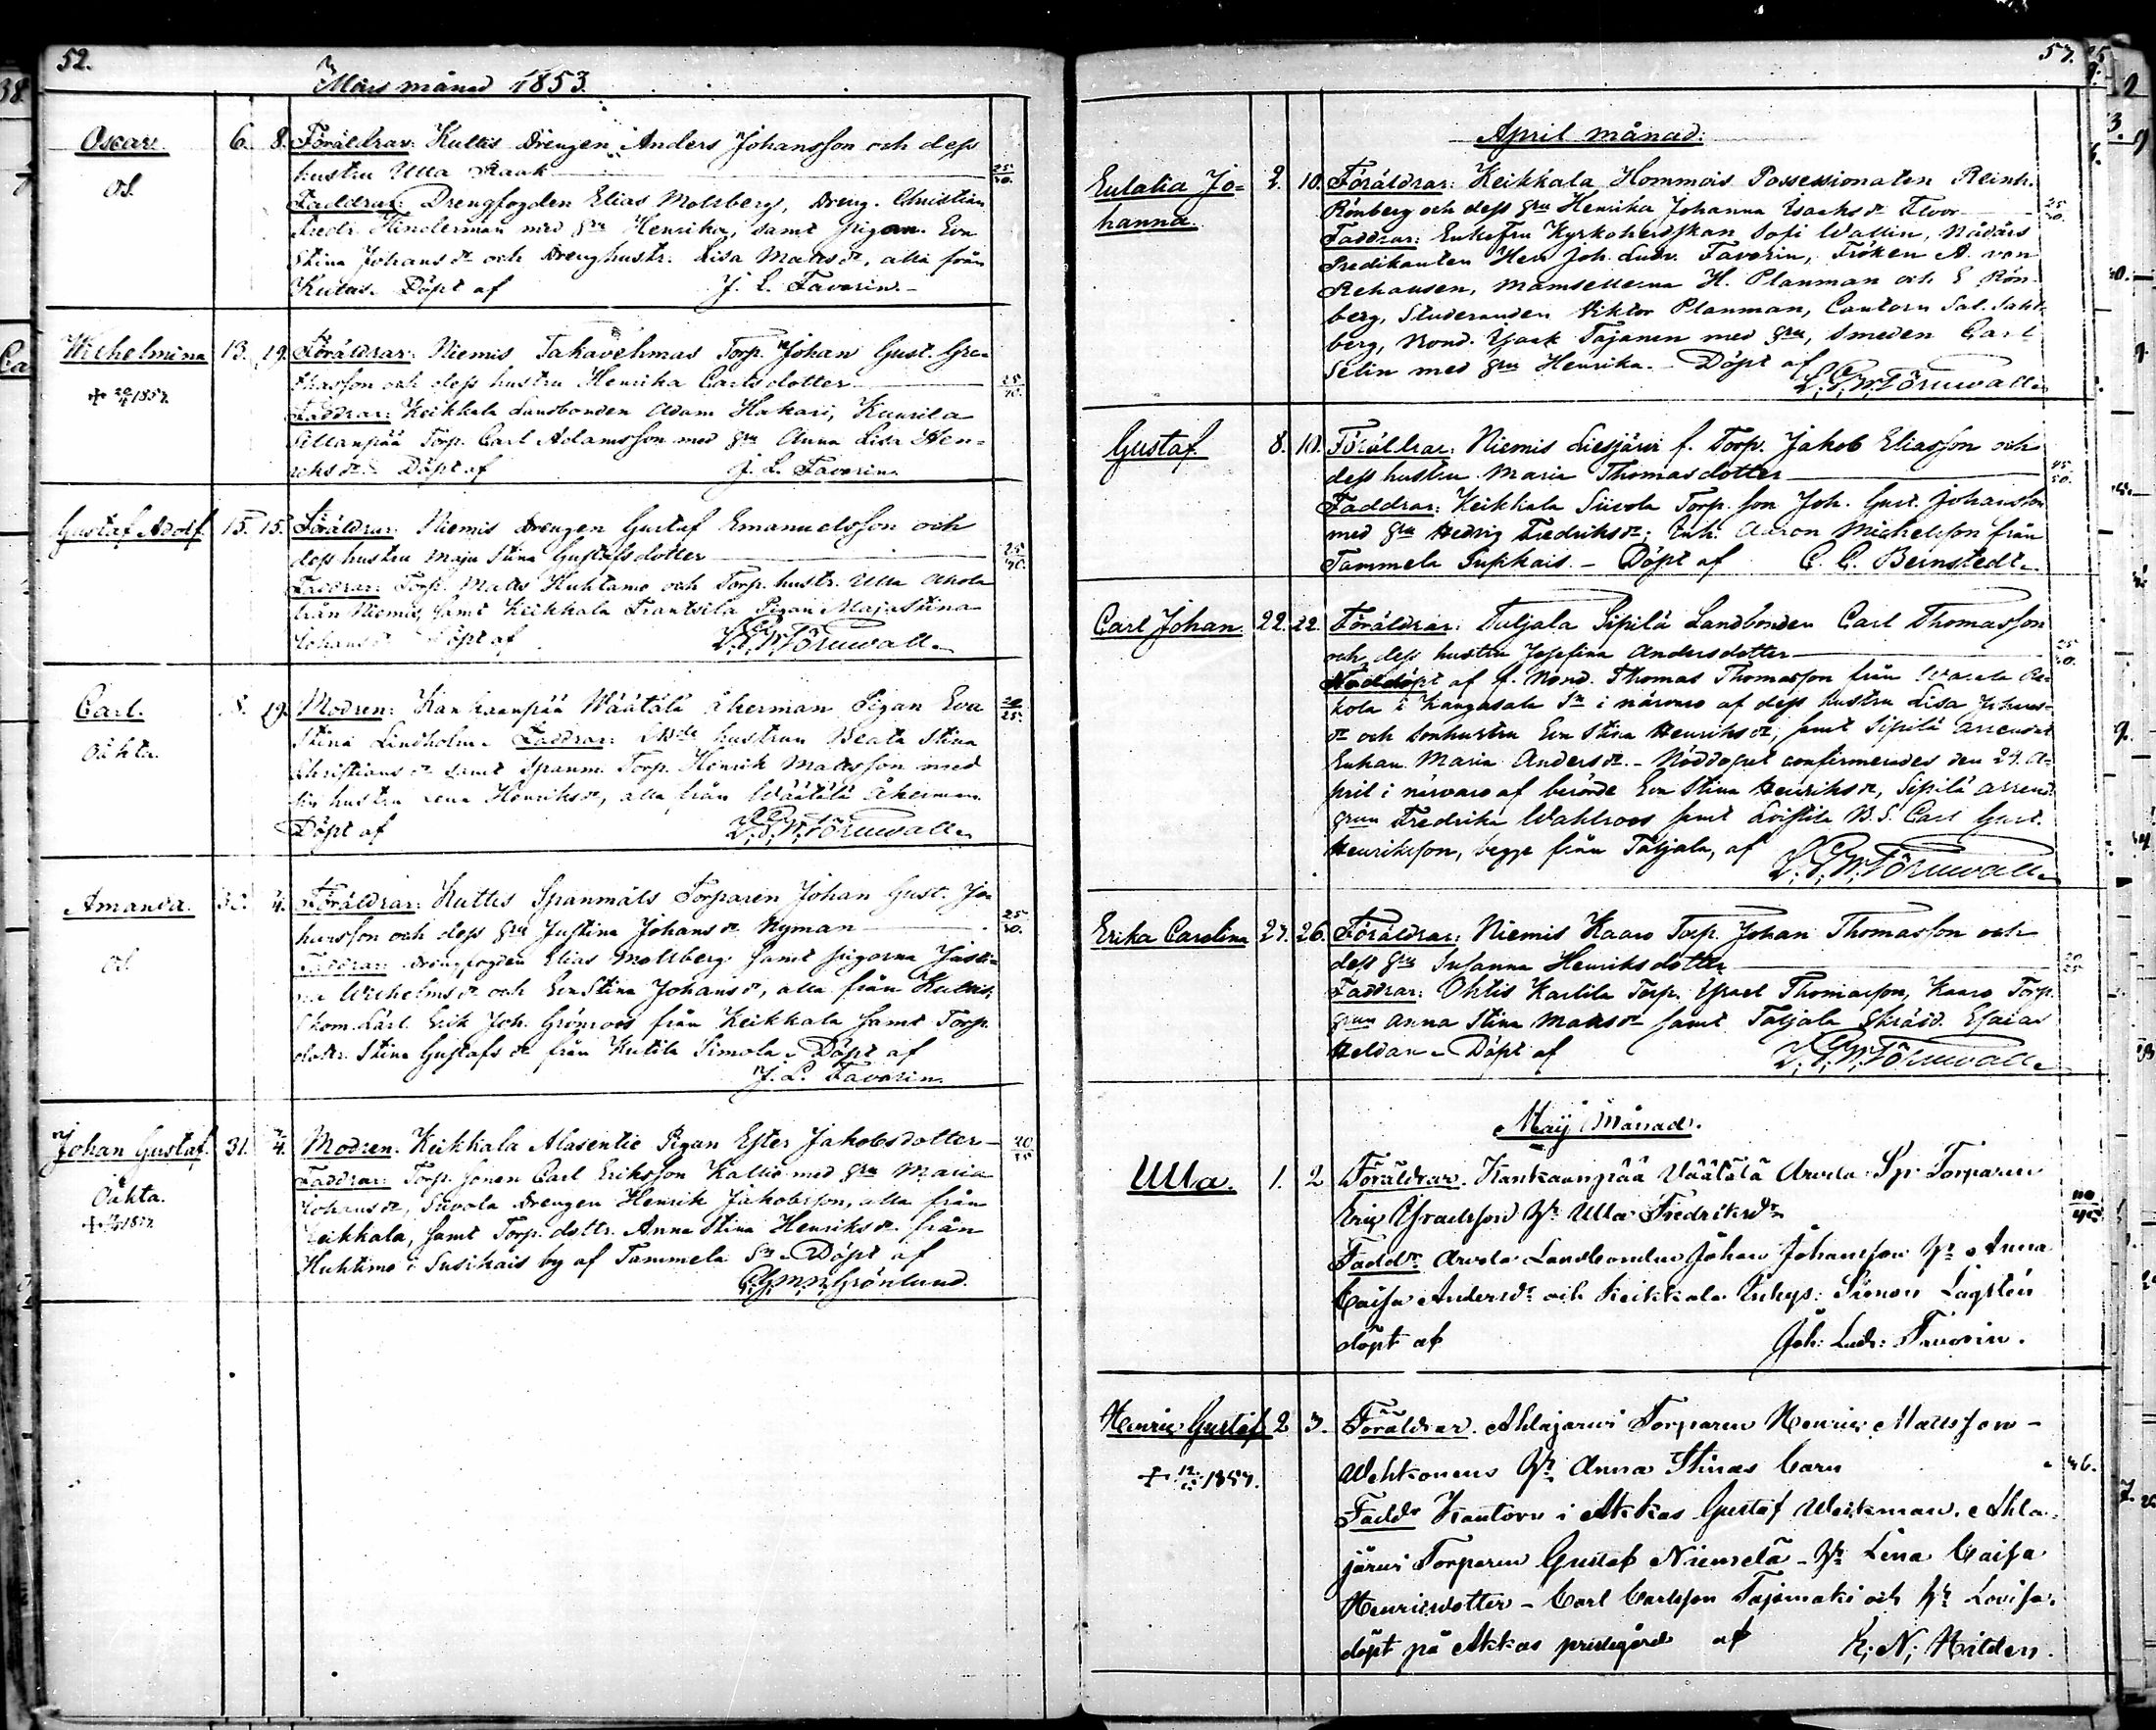 52.
Mars månad 1853.
Oscar. 6. 8. Föräldrar: Kultis Drengen Anders Johansson och dess
Oä. hustru Ulla Raak 25/30.
Faddrar: Drengfogden Elias Molsberg, Dreng. Christian
Fredr. Hinderman med hru Henrika, samt pigan Eva
Stina Johans dr och Drenghustr. Lisa Matts dr, alla från
Kultis. Döpt af J. L. Favorin.
Wilhelmina 13. 19. Föräldrar: Niemis Takavehmas Torp. Johan Gust. Gra-
hustru Henrika Carlsdotter
Faddrar: Keikkala Landbonden Adam Hakari, Kuurila
Sillanpää Torp. Carl Adamsson med hru Anna Lisa Hen-
riks dr. Döpt af J. L. Favorin.
Gustaf Adolf. 15. 15. Föräldrar: Niemis Drengen Gustaf Emanuelsson och
dess hustru Maja Stina Gustafsdotter
Faddrar: Torp. Matts Huhtamo och Torp. hustr. Ulla Ahola
från Niemis, samt Keikkala Frantsila Pigan Maja Stina
Johans dr Döpt af Törnwall.
Carl. 19. Modren: Kankaanpää Wäätälä Åkerman Pigan Eva
Oäkta. Stina Lindholm. Faddrar: hustrun Beata Stina
Christians dr samt Spanm. Torp. Henrik Mattsson med
sin hustru Lena Henriks dr, alla från Wäätälä Åkerman.
Döpt af Törnwall.
Amanda. 4. Föräldrar: Kultis Spanmåls Torparen Johan Gust. Jo-
hansson och dess hru Justina Johans dr Nyman 25/30.
Faddrar: Drengfogden Elias Molsberg samt pigorna Justi-
na Wilhelms dr och Eva Stina Johans dr, alla från Kultis,
Erik Joh. Grönroos från Keikkala samt Torp.
dottr. Stina Gustafs dr från Kutila Simola. Döpt af
J. L. Favorin.
Johan Gustaf. 31. 4. Modren. Keikkala Alasentie Pigan Ester Jakobsdotter
Oäkta. Faddrar: Torp. sonen Carl Eriksson Kallio med hru Maria
Johans dr, Siivola Drengen Henrik Jakobsson, alla från
Keikkala, samt Torp. dottr. Anna Stina Henriks dr från
Huhtimo i Susikais by af Tammela Sn. Döpt af
Grönlund.
57.
April månad.
Eulalia Jo- 2. 10. Föräldrar: Keikkala Hommois Possessionaten Reinh.
hanna. Rönberg och dess hru Henrika Johanna Isachs dr Elvor 25/30.
Faddrar: Enkefru Kyrkoherdskan Sofi Wallin, Nådårs
Predikanten Herr Joh. Ludv. Favorin, Fröken A. von
Rehausen, Mamsellerna H. Planman och E Rön-
berg, Studeranden Viktor Planman, Cantorn Sal. Sahl-
berg, Bond. Isaak Tajanen med hru, Smeden Carl
Selin med hru Henrika. Döpt af
Törnwall.
Gustaf 8. 10. Föräldrar: Niemis Liesjärvi f. Torp. Jakob Eliasson och
dess hustru Maria Thomasdotter
Faddrar: Keikkala Siivola Torp. son Joh. Gust. Johansson
med hru Hedvig Fredriks dr; Enk. Aaron Michelsson från
Tammela Susikais. - Döpt af C. G. Bernstedt.
Carl Johan. 22. 22. Föräldrar: Taljala Sipilä Landbonden Carl Thomasson
och dess hustru Josefina Andersdotter
Nöddöpt af f. Bond. Thomas Thomasson från
i Kangasala Sn i närvaro af dess hustru Lisa Johans
dr och Sonhustru Eva Stina Henriks dr, samt Sipilä
Enkan Maria Anders dr. - Nöddopet confirmerades den 24. A-
pril i närvaro af berörde Eva Stina Henriks dr, Sipilä arrend.
hrun Fredrika Wahlroos samt B. S. Carl Gust.
Henriksson, begge från Taljala, af Törnwall.
Erika Carolina 24. 26. Föräldrar: Niemis Kaaro Torp. Johan Thomasson och
dess hru Susanna Henriksdotter
Faddrar: Ohtis Karlila Torp. Israel Thomasson, Kaaro Torp.
hrun Anna Stina Matts dr samt Taljala Skrädd. Esaias
Heldan. Döpt af Törnwall.
Maij Månad.
Ulla. 1. 2 Föräldrar. Kankaanpää Väätälä Arvela Sp. Torparen
Eric Israelsson hr Ulla Fredriks dr
Fadd.r Arvela Landbonden Johan Johansson hr Anna
Caisa Anders dr och Keikkala Inhys: Simon Lagsten
döpt af Joh: Ludv: Favorin.
Henric Gustaf 2 3. Föräldrar. Ahlajärvi Torparen Henric Mattsson
1857. Wehkonens hr Anna Stinas barn
Fadd.r Kantorn i Akkas Gustaf Weckman. Ahla-
järvi Torparen Gustaf Niemelä - hr Lena Caisa
Henricsdotter - Carl Carlsson Tajamaki och hr Lovisa.
döpt på Akkas prestegård af K: N: Hilden.